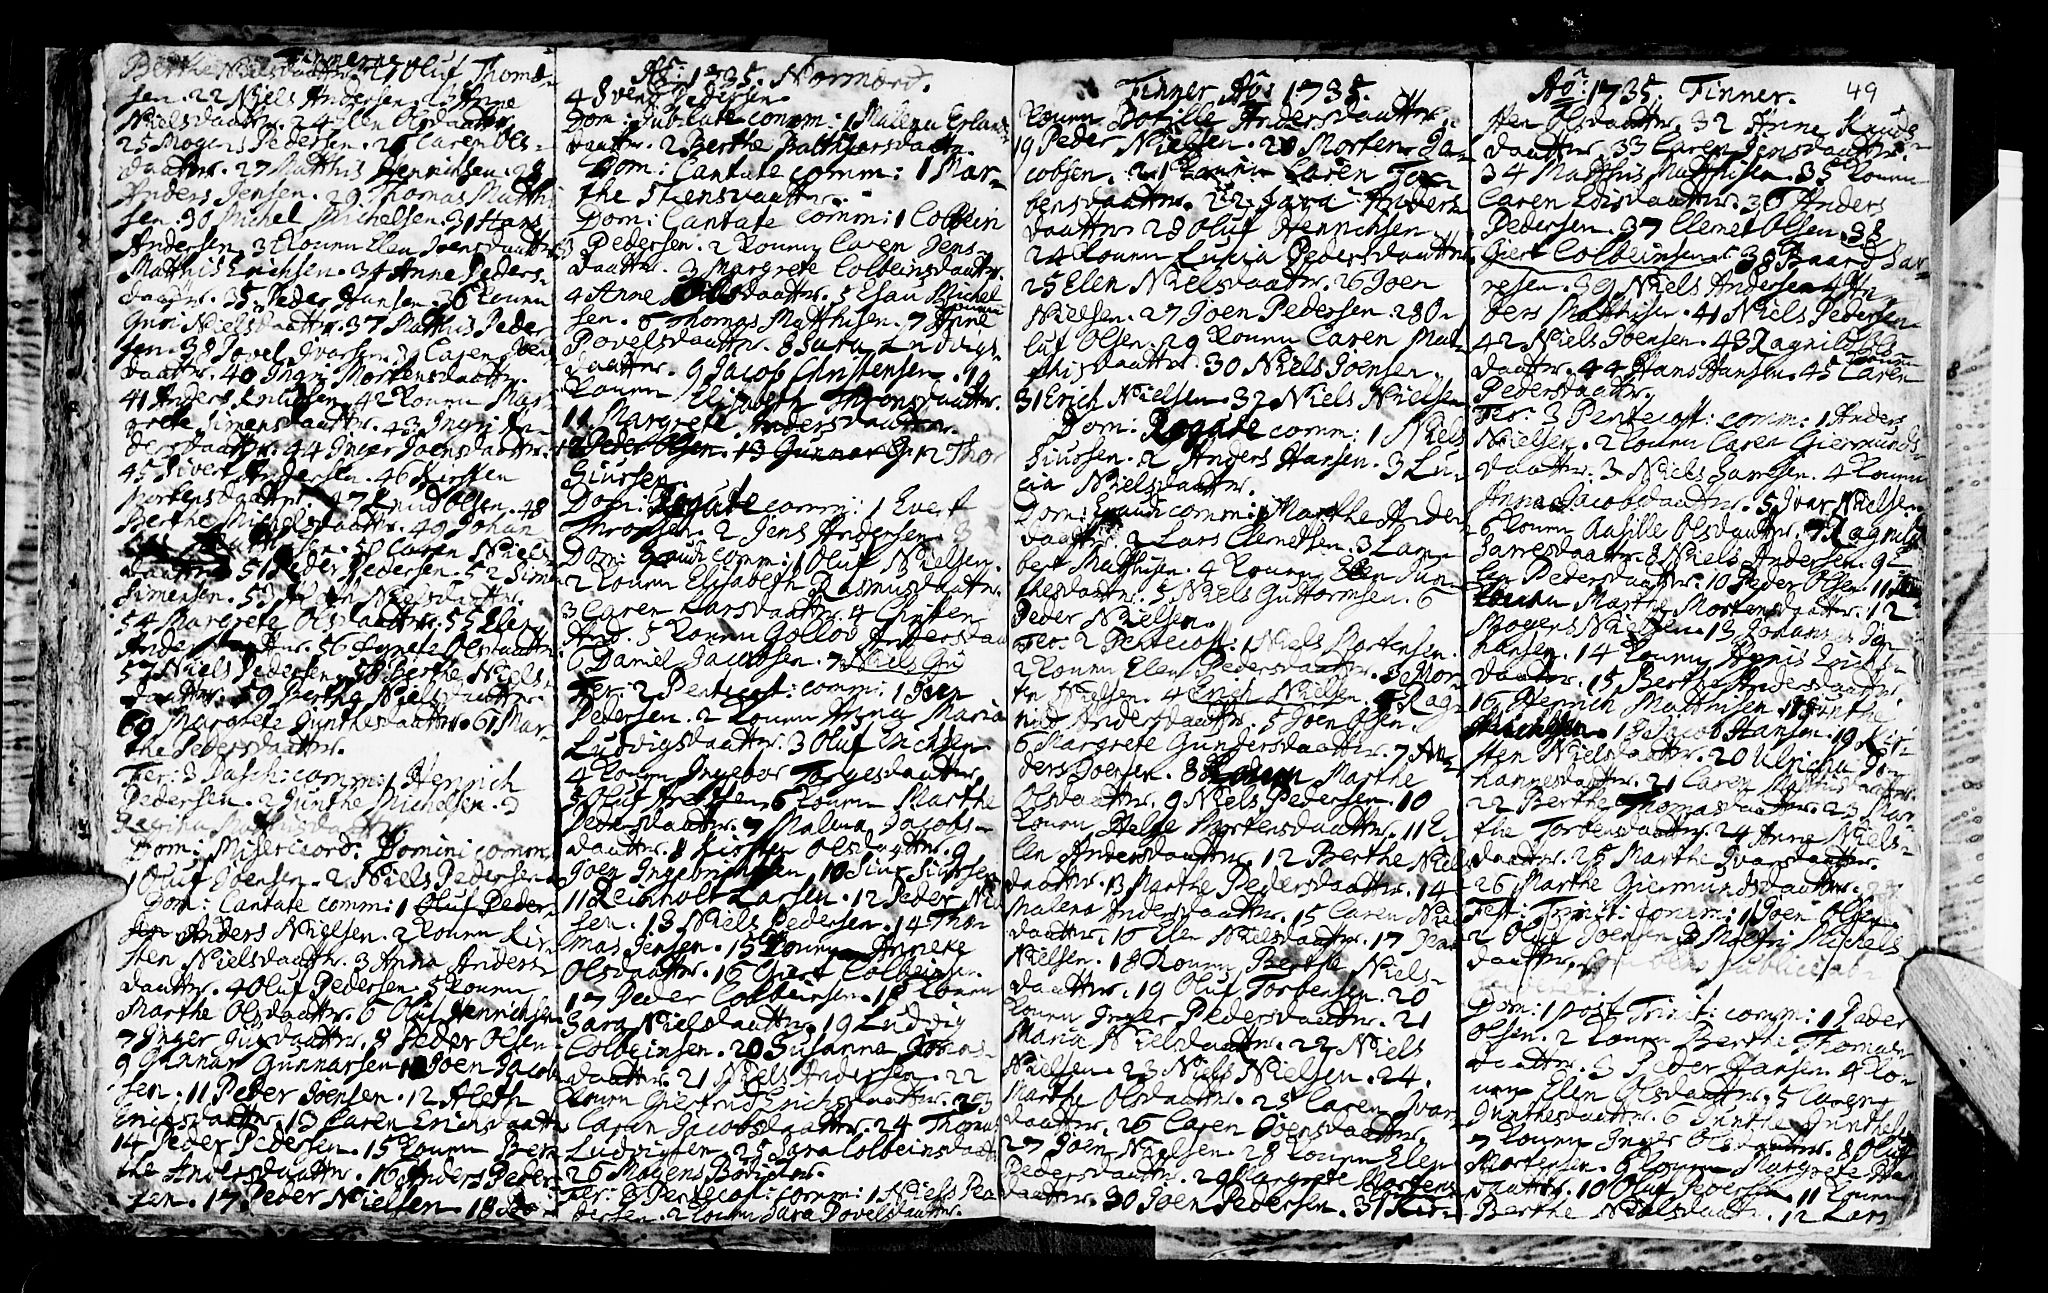 Finner
Berthe Nielsdaattr. 21 Oluf Thomæ-
sen. 22 Niels Andersen. 23 Anne
Nielsdaattr. 24 Elen Olsdaattr.
25 Mogens Pedersen. 26 Caren Ols-
daattr. 27 Matthis Henrichsen. 28
Anders Jensen. 29 Thomas Matthi-
sen. 30 Michel Michelsen. 31 Hans
Andersen. 32 Konen Elen Joensdaattr. 33
Matthis Erichsen. 34 Anne Peders-
daattr. 35 Peder Hansen. 36 Konen
Guri Nielsdaattr. 37 Matthis Peder-
sen. 38 Povel Ivarsen. 39 Caren
daattr. 40 Ingri Mortensdaattr.
41 Anders Knudsen. 42 Konen Mar-
grete Simensdaattr. 43 Ingri
dersdaattr. 44 Inger Joensdaattr.
45 Sivert Andersen. 46 Kirsten
Mortensdaattr. 47 Knud Olsen. 48
Berthe Michelsdaattr. 49 Johan
50 Caren Niels-
daattr. 51 Peder Pedersen. 52 Simen
Simensen. 53 Nielsdaattr.
54 Margrete Olsdaattr. 55 Elen
Andersdaattr. 56 Agnete Olsdaattr.
57 Niels Pedersen. 58 Berthe Niels-
daattr. 59 Berthe Nielsdaattr.
60 Margrete Gunthesdaattr. 61 Mar-
the Pedersdaattr.
Fer: 3 Pasch: comm: 1 Henrich
Pedersen. 2 Gunthe Michelsen. 3
Regina Matthisdaattr.
Dom: Misericord: Domini comm:
1 Oluf Joensen. 2 Niels Pedersen.
Dom: Cantate comm: 1 Oluf Peder-
sen Anders Nielsen. 2 Konen Kir-
sten Nielsdaattr. 3 Anna Anders-
daattr. 4 Oluf Pedersen. 5 Konen
Marthe Olsdaattr. 6 Oluf Henrichsen
7 Inger daattr. 8 Peder Olsen.
9 Gunnar Gunnarsen 10 Joen Jacob-
sen. 11 Peder Joensen. 12 Aleth
Erichsdaattr. 13 Caren Erichsdaattr.
14 Peder Pedersen. 15 Konen Ber-
the Andersdaattr. 16 Anders Peder-
sen. 17 Peder Nielsen. 18 Ko-
Aō: 1735. Normænd.
4 Svend Pedersen.
Dom: Jubilate comm: 1 Malena Erlands-
daattr. 2 Berthe Balthsarsdaattr.
Dom: Cantate comm: 1 Mar-
the Stensdaattr.
Dom: Cantate comm: 1 Colbein
Pedersen. 2 Konen Caren Jens-
daattr. 3 Margrete Colbeinsdaattr.
4 Anne Olsdaattr. 5 Esau Michel-
sen. 6 Thomas Matthisen. 7 Konen Anne
Povelsdaattr. 8 Sara Ludvigs-
daattr. 9 Jacob Christensen. 10
Konen Elisabeth Thronsdaattr.
11 Margrete Andersdaattr.
12 Peder Olsen. 13 Gunnar G 12 Thor
Siursen.
Dom: Rogate comm: 1 Evert
Thronsen. 2 Jens Andersen. 3
Dom: Exaudi comm: 1 Oluf Nielsen.
2 Konen Elisabeth Rasmusdaattr.
3 Caren Larsdaattr. 4 Christen
And. 5 Konen Gollov Andersdaa
6 Daniel Jacobsen. 7 Niels
Fer: 2 Pentecost: comm: 1 Joen
Pedersen. 2 Konen Anna Maria
Ludvigsdaattr. 3 Oluf Erichsen
4 Konen Ingebor Torgesdaattr.
5 Oluf 6 Konen Marthe
Pedersdaattr. 7 Malena Jacobs-
daattr. 8 Kirsten Olsdaattr. 9
Joen Ingebrigtsen 10 Siur Siursen
11 Reinholt Larsen. 12 Peder Niel-
sen. 13 Niels Pedersen. 14 Tho-
mas Jensen. 15 Konen Anneke
Olsdaattr. 16 Giert Colbeinsen.
17 Peder Colbeinsen. 18 Konen
Sara Nielsdaattr. 19 Ludvig
Colbeinsen. 20 Susanna Joens-
daattr. 21 Niels Andersen. 22
Konen Giertrud Erichsdaattr. 23
Caren Jacobsdaattr. 24 Thomas
Ludvigsen. 25 Sara Colbeinsdaattr
26 Mogens
Fer: 3 Pentecost: comm: 1 Niels Pe-
dersen. 2 Konen Sara Povelsdaattr.
Finner Aō: 1735.
Konen Botille Andersdaattr.
19 Peder Nielsen. 20 Morten Ja-
cobsen. 21 Konen Caren Tor-
bensdaattr. 22 Sara Anders-
daattr 23 Oluf Henrichsen
24 Konen Lucia Pedersdaattr
25 Elen Nielsdaattr. 26 Joen
Nielsen. 27 Joen Pedersen. 28 O-
luf Olsen. 29 Konen Caren Mat-
thisdaattr. 30 Niels Joensen.
31 Erich Nielsen. 32 Niels Nielsen
Dom: Rogate comm: 1 Niels
Siursen. 2 Anders Hansen. 3 Lu-
cia Nielsdaattr.
Dom: Exaudi comm: 1 Marthe Anders-
daattr. 2 Lars Clemetsen. 3 Lam-
bert Matthisen. 4 Konen Elen Gun-
thesdaattr. 5 Niels Guttormsen. 6
Peder Nielsen.
Fer: 2 Pentecost: 1 Niels Mortensen.
2 Konen Elen Pedersdaattr. 3 Mor-
ten Nielsen. 4 Erich Nielsen. Rag-
nild Andersdaattr. 5 Joen Olsen.
6 Margrete Gundersdaattr. 7 An-
ders Joensen. 8 Konen Marthe
Olsdaattr. 9 Niels Pedersen. 10
Konen Helge Mortensdaattr. 11 E-
len Andersdaattr. 12 Berthe Niels
daattr. 13 Marthe Pedersdaattr. 14
Malena Andersdaattr. 15 Caren Niels
daattr. 16 Elen Nielsdaattr. 17 Jens
Nielsen. 18 Konen Berthe Niels-
daattr. 19 Oluf Torbensen. 20
Konen Inger Pedersdaattr. 21
Maria Nielsdaattr. 22 Niels
Nielsen. 23 Niels Nielsen. 24.
Marthe Olsdaattr. 25 Caren Ivars
daattr. 26 Caren Joensdaattr.
27 Joen Nielsen. 28 Konen Elen
Pedersdaattr. 29 Margrete Mortens
daattr. 30 Joen Pedersen. 31 Kir-
Aō: 1735. Finner. 49
sten Olsdaattr. 32 Anne Knuds-
daattr. 33 Caren Jensdaattr.
34 Matthis Matthisen. 35 Konen
Caren Loisdaattr. 36 Anders
Pedersen. 37 Clemet Olsen. 38
Giert Colbeinsen. 38 Baard Sar-
resen. 39 Niels Andersen 40 An-
ders Matthisen. 41 Niels Pedersen
42 Niels Joensen. 43 Ragnild
daattr. 44 Hans Hansen. 45 Konen Caren
Pedersdaattr.
Fer: 3 Pentecost: comm: 1 Anders
Nielsen. 2 Konen Caren Giermunds-
daattr. 3 Niels Sarresen. 4 Konen
Anna Jacobsdaattr. 5 Ivar Nielsen.
6 Konen Aasille Olsdaattr. 7 Ragnild
Sarresdaattr. 8 Niels Andersen. 9 E-
len Pedersdaattr. 10 Peder Olsen. 11
Konen Marthe Mortensdaattr. 12
Mogens Nielsen. 13 Johannes Jo-
hansen. 14 Konen Agnis Erichs-
daattr. 15 Berthe Andersdaattr
16 Henrich Matthisen. 17 Gunthe
Henrichsen. 18 Jacob Hansen. 19 Kir-
sten Nielsdaattr. 20 Ulricha Jo-
hannesdaattr. 21 Caren Matthisdaattr.
22 Berthe Thomasdaattr. 23 Mar-
the Torbensdaattr. 24 Anne Niels-
daattr. 25 Marthe Ivarsdaattr.
26 Marthe Giermundsdaattr.
Fest: Trinit: comm: 1 Joen Olsen
2 Oluf Joensen 3 Malfri Michels
daattr. publice ab-

Dom: 1 post Trinit: comm: 1 Peder
Olsen. 2 Konen Berthe Thomæ-
daattr. 3 Peder Hansen. 4 Ko-
nen Elen Olsdaattr. 5 Caren
Gunthesdaattr. 6 Gunthe Gunthesen
7 Konen Inger Olsdaattr. 8 Oluf
Mortensen. 9 Konen Margrete
daattr. 10 Oluf Pedersen. 11 Konen
Berthe Nielsdaattr. 12 Lars